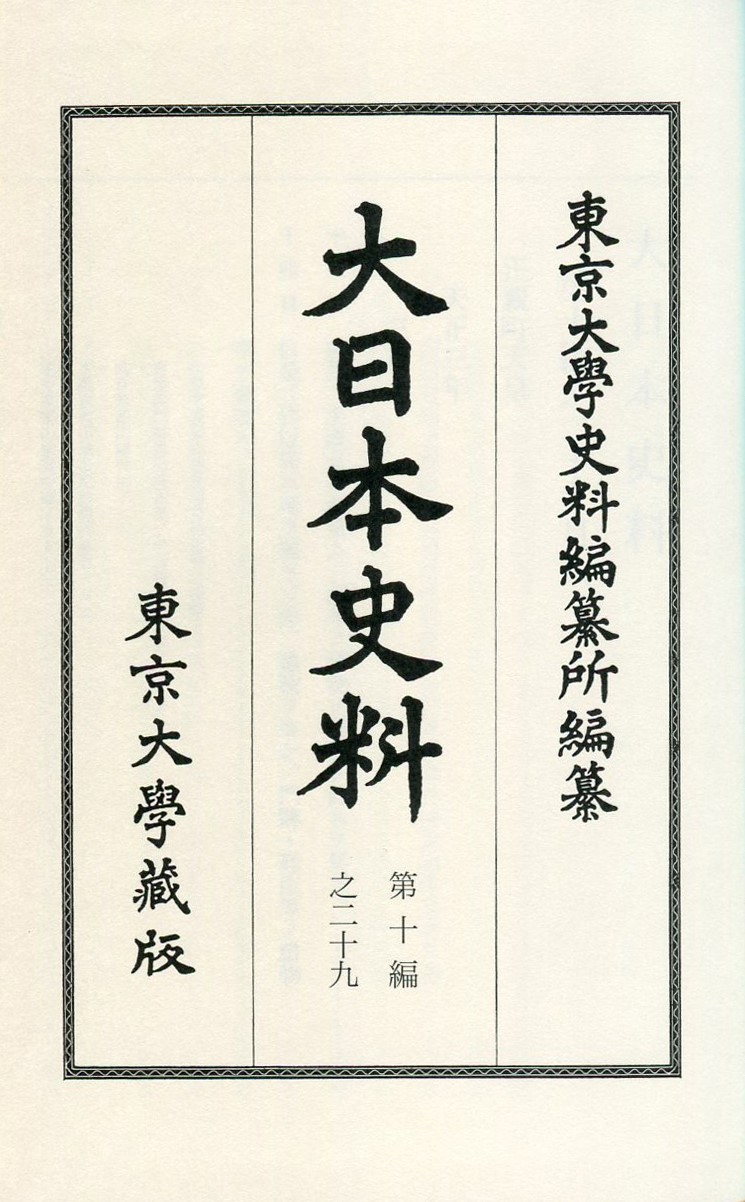 東京大學史料編纂所編纂
大日本史料
第十編
之二十九
東京大學藏版